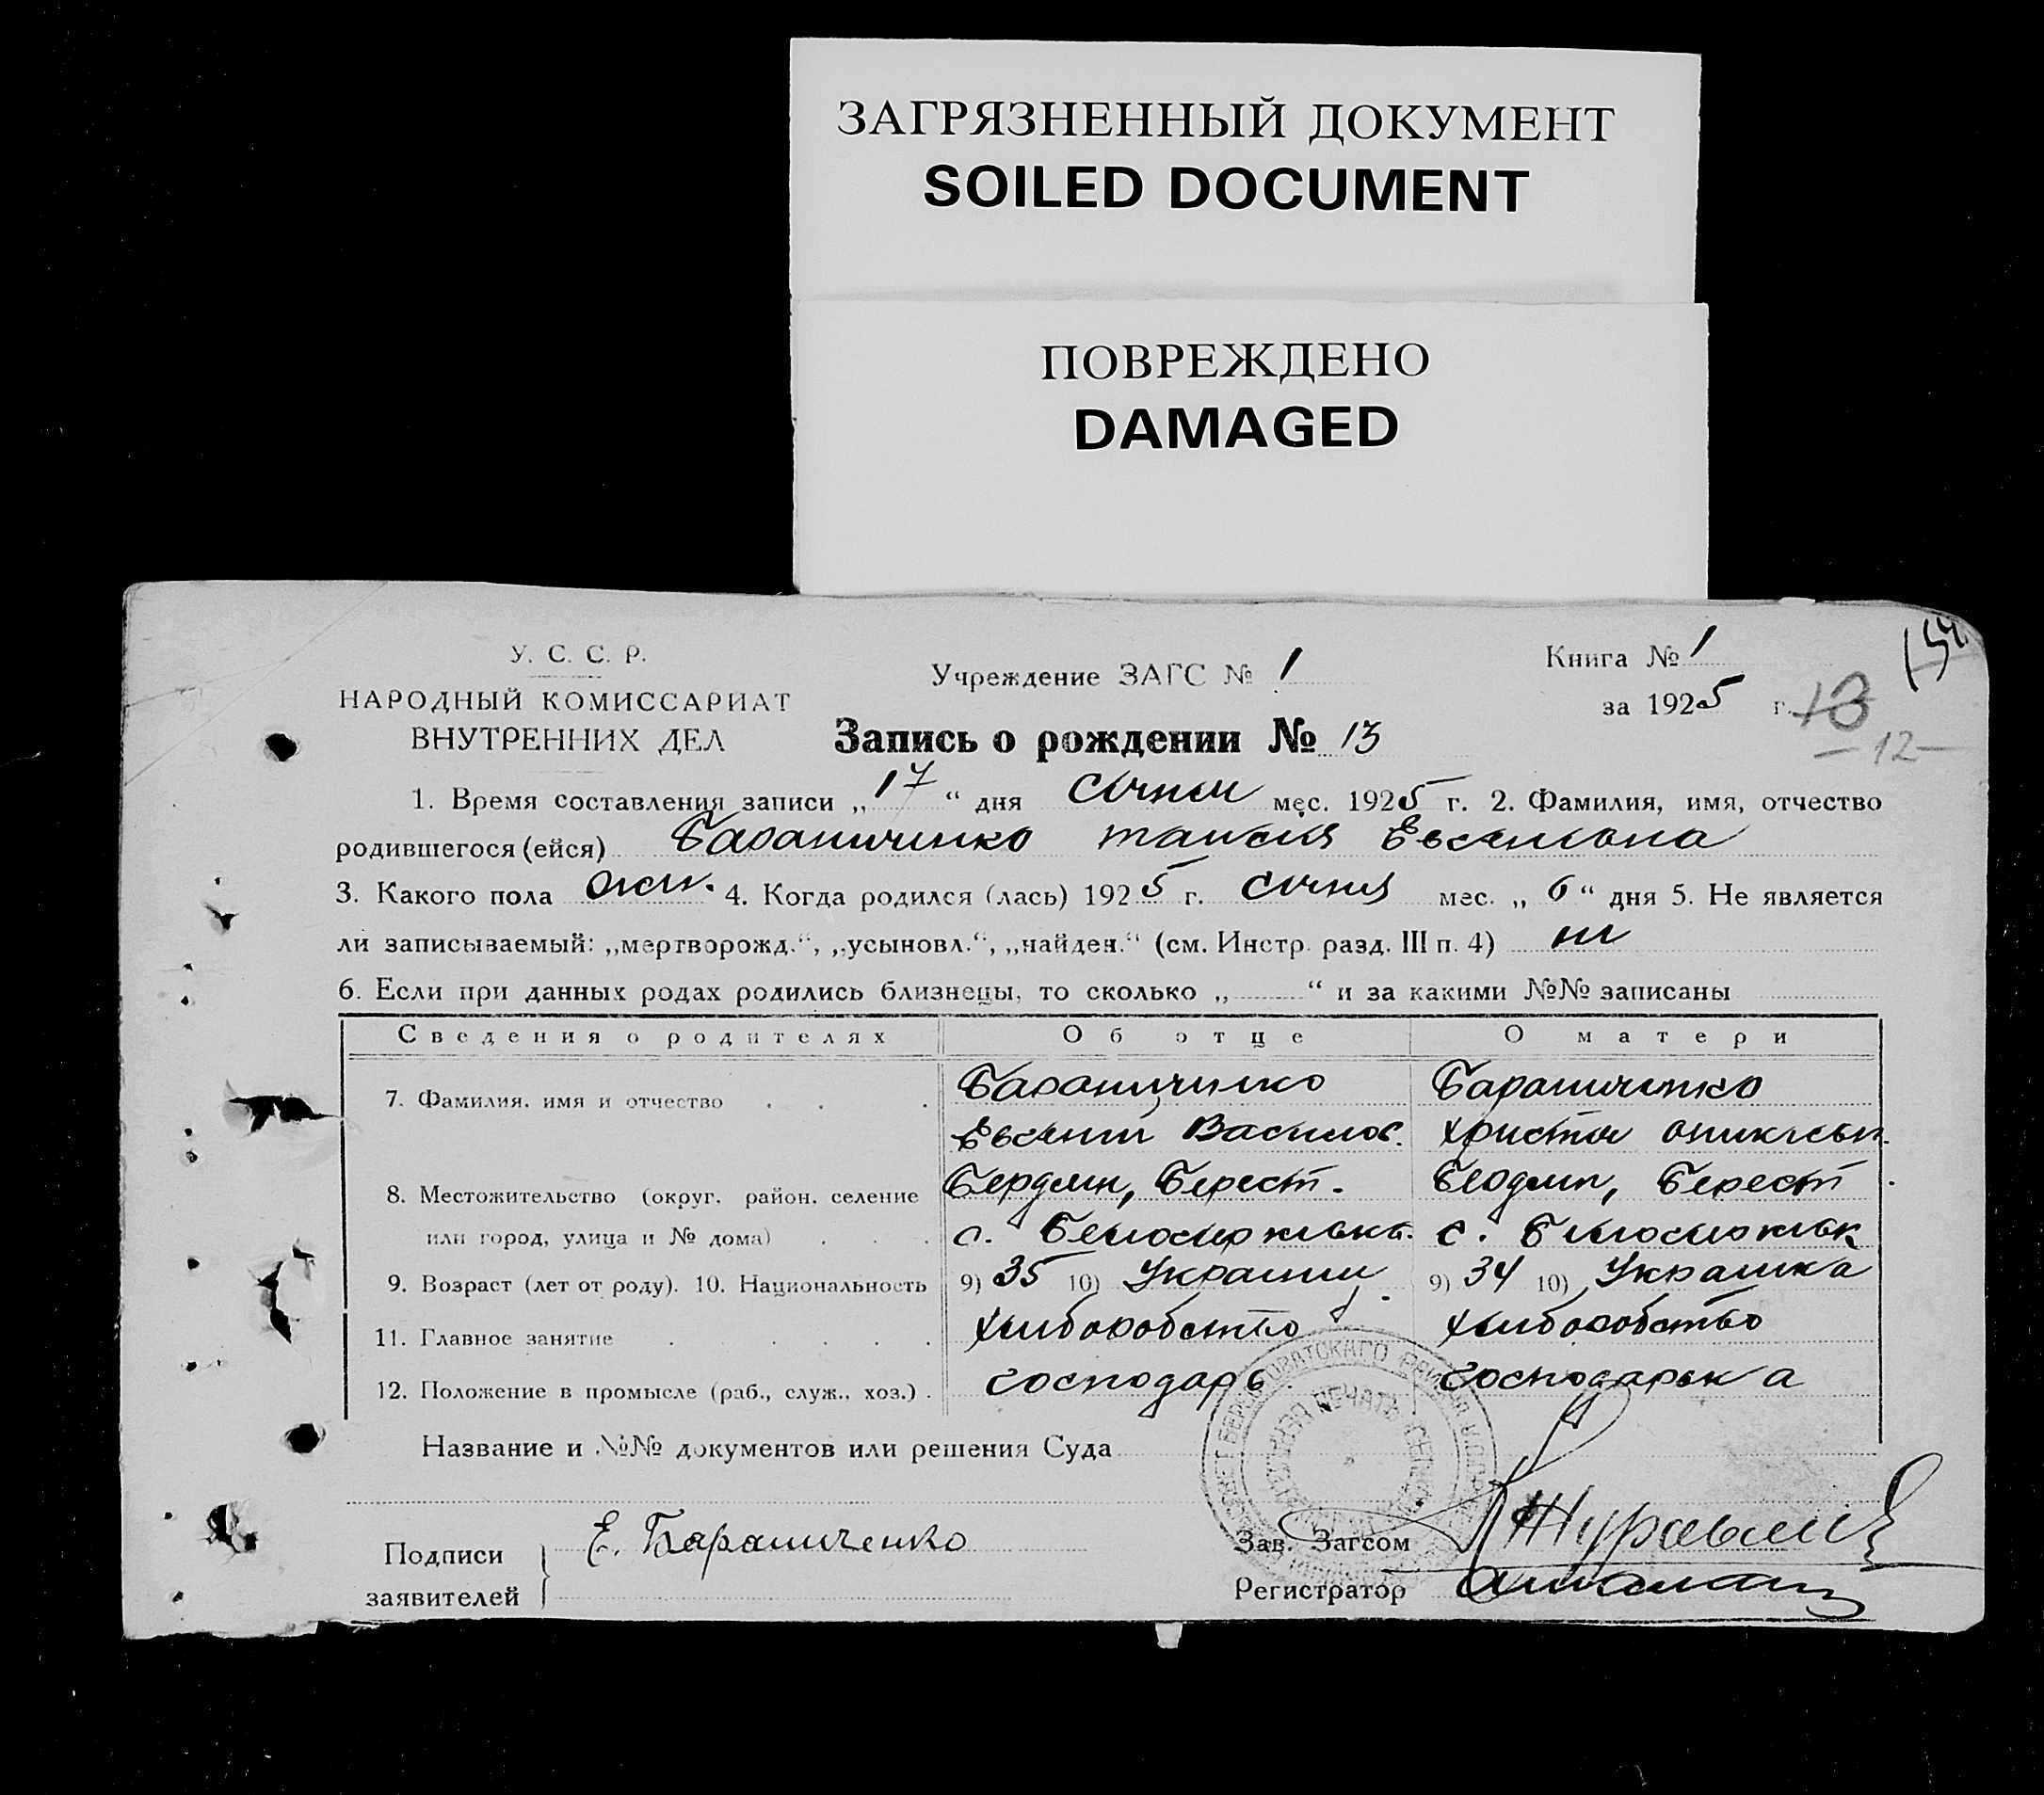 ЗАГРЯЗНЕННЫЙ ДОКУМЕНТ
SOILED DOCUMENT
ПОВРЕЖДЕНО
DAMAGED
У. С. С. Р.
НАРОДНЫЙ КОМИССАРИАТ
ВНУТРЕННИХ ДЕЛ
Учреждение ЗАГС № 1
Книга № 1
за 1925 г.
13
— 12 —
Запись о рождении № 13
1. Время составления записи „17“ дня січня мес. 1925 г. 2. Фамилия, имя, отчество
родившегося (ейся) Бараниченко Таисія
3. Какого пола жен. 4. Когда родился (лась) 1925 г. січня мес. „6“ дня 5. Не является
ли записываемый: „мертворожд.“, „усыновл.“, „найден.“ (см. Инстр. разд. III п. 4) ні
6. Если при данных родах родились близнецы, то сколько „ “ и за какими №№ записаны
Сведения о родителях Об отце О матери
7. Фамилия, имя и отчество Бараниченко Бараниченко
Василов. Христя
8. Местожительство (округ, район, селение Бердян, Берест. Бердян, Берест
или город, улица и № дома) с. с.
9. Возраст (лет от роду). 10. Национальность 9) 35 10) 9) 34 10) Украинка
11. Главное занятие хлиборобство хлиборобство
12. Положение в промысле (раб., служ., хоз.) господарь господарька
Название и №№ документов или решения Суда
Подписи
заявителей
Е. Бараниченко
Зав. Загсом
Регистратор